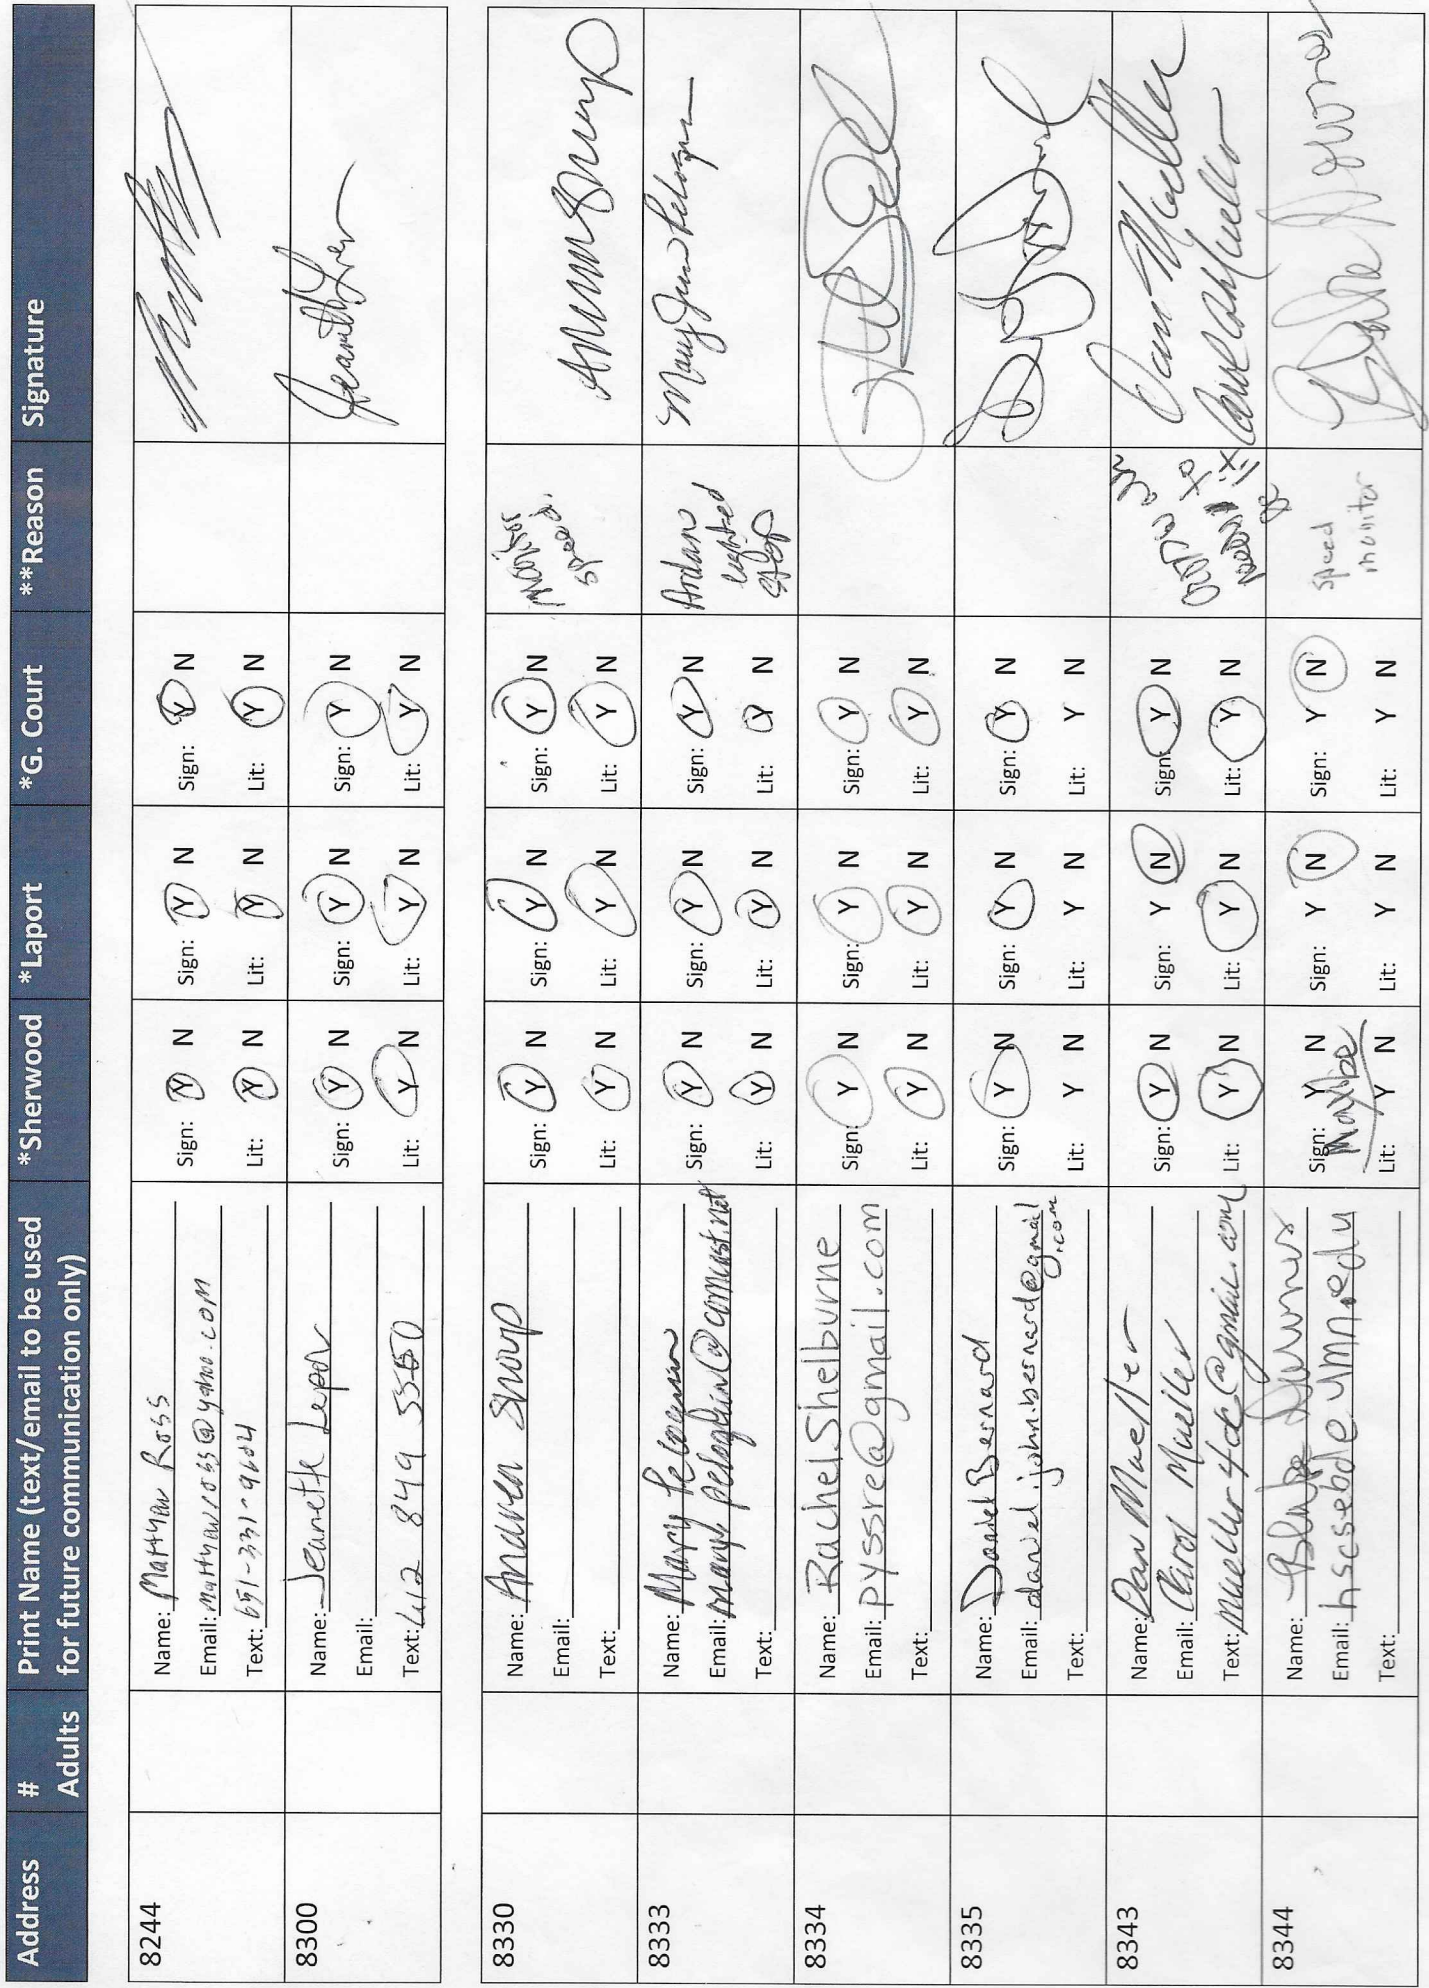 Address # Adults Print Name (text/email to be used for future communication only) *Sherwood *Laport *G. Court **Reason Signature
8244
Name: Matthew Ross
Email: matthewross@yahoo.com
Text: 651-331-9604
Sign: Y N Sign: Y N Sign: Y N
Lit: Y N Lit: Y N Lit: Y N
8300
Name: Jeanette Lepor
Email:
Text: 612 849 5550
Sign: Y N Sign: Y N Sign: Y N
Lit: Y N Lit: Y N Lit: Y N
8330
Name: Andrea Shorp
Email:
Text:
Sign: Y N Sign: Y N Sign: Y N
Lit: Y N Lit: Y N Lit: Y N
Monitor
speed.
8333
Name: Mary Peloquin
Email: mary.peloquin@comcast.net
Text:
Sign: Y N Sign: Y N Sign: Y N
Lit: Y N Lit: Y N Lit: Y N
lighted
stop
8334
Name: Rachel Shelburne
Email: pyssre@gmail.com
Text:
Sign: Y N Sign: Y N Sign: Y N
Lit: Y N Lit: Y N Lit: Y N
8335
Name: Daniel Bernard
Email: daniel.john.bernard@gmail
.com
Text:
Sign: Y N Sign: Y N Sign: Y N
Lit: Y N Lit: Y N Lit: Y N
8343
Name: Dan Mueller
Email: Carol Mueller
Text: mueller4dc@gmail.com
Sign: Y N Sign: Y N Sign: Y N
Lit: Y N Lit: Y N Lit: Y N
to
Dan Mueller
Carol Mueller
8344
Name: Blake
Email: hscsebde umn.edu
Text:
Sign: Y N Sign: Y N Sign: Y N
Maybe
Lit: Y N Lit: Y N Lit: Y N
speed
monitor